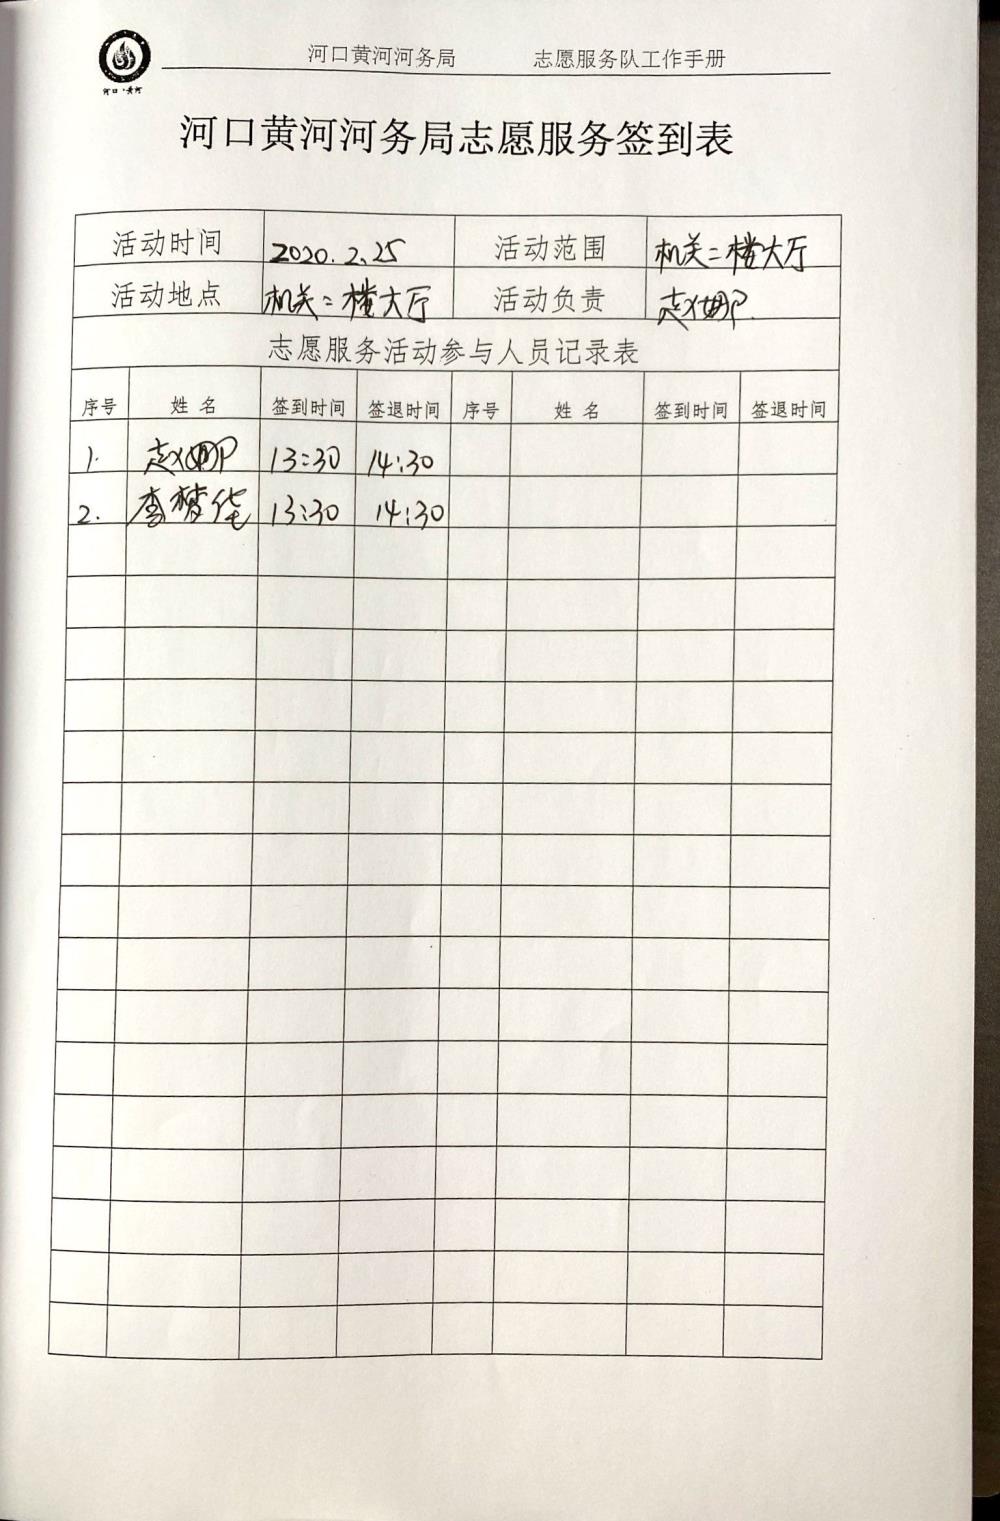 河口黄河河务局 志愿服务队工作手册
河口·黄河
河口黄河河务局志愿服务签到表
活动时间 2020.2.25 活动范围 机关二楼大厅
活动地点 机关二楼大厅 活动负责 赵娜
志愿服务活动参与人员记录表
序号 姓名 签到时间 签退时间 序号 姓名 签到时间 签退时间
1. 赵娜 13:30 14:30
2. 李梦华 13:30 14:30